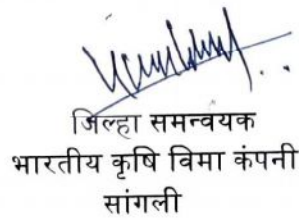 जिल्हा समन्वयक
भारतीय कृषि विमा कंपनी
सांगली